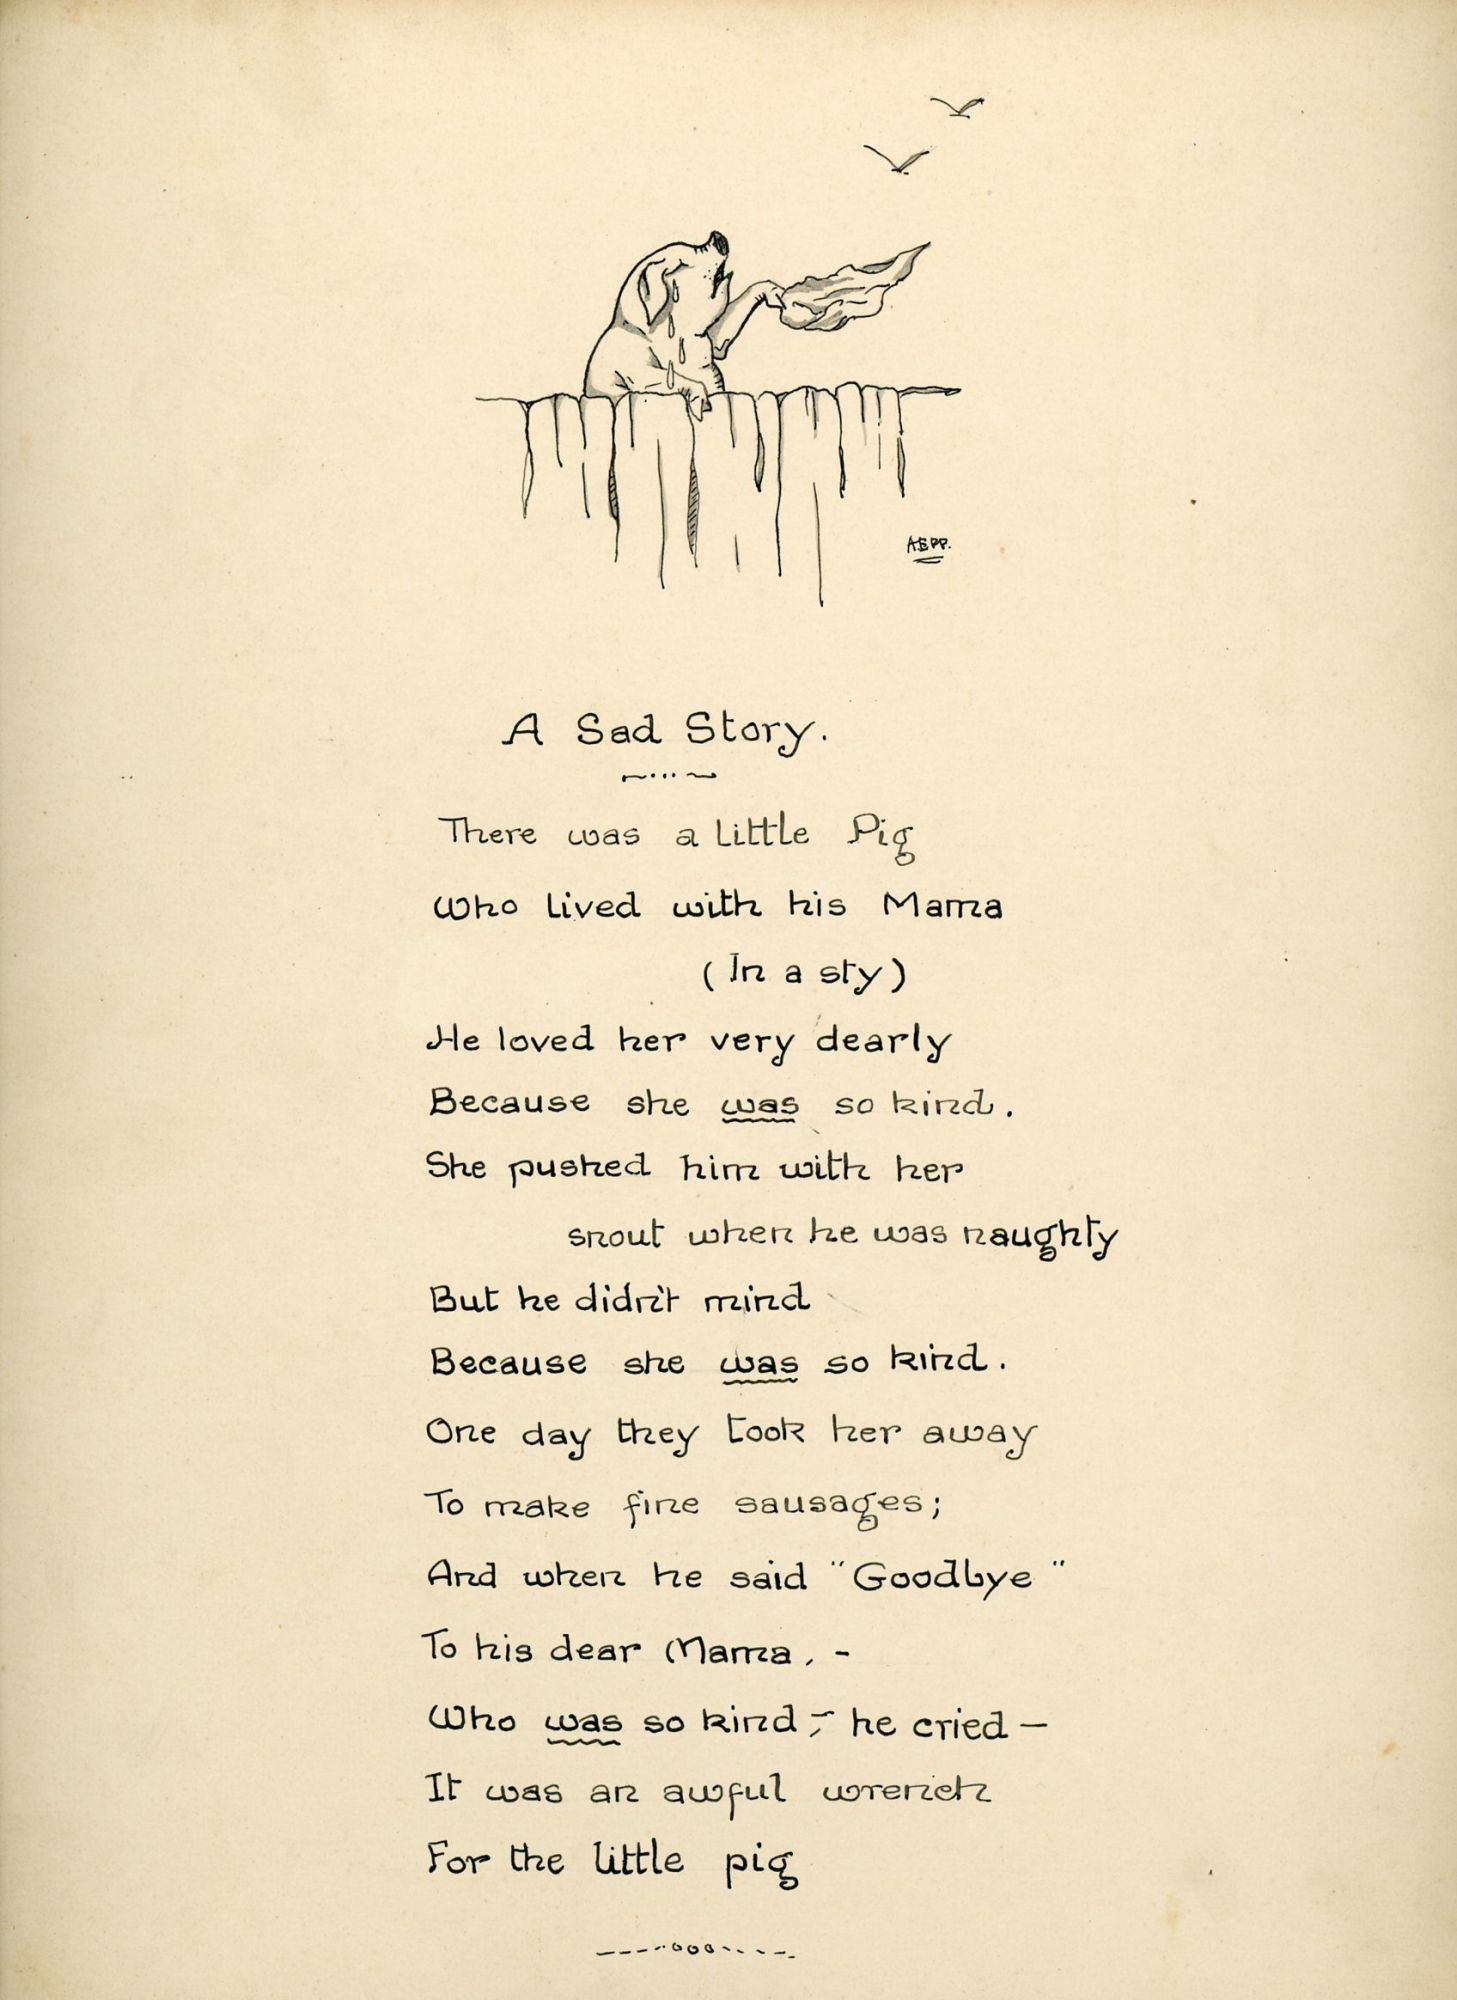 A.E.P.P.
A Sad Story.
There was a little Pig
Who lived with his Mama
(In a sty)
He loved her very dearly
Because she was so kind.
She pushed him with her
snout when he was naughty
But he didn't mind
Because she was so kind.
One day they took her away
To make fine sausages;
And when he said "Goodbye"
To his dear Mama, -
Who was so kind, - he cried -
It was an awful wrench
For the little pig